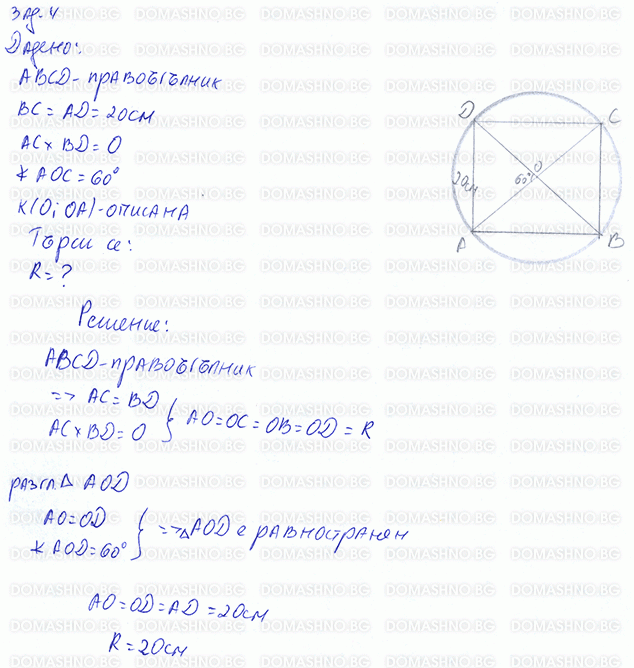 Зад. 4
Дадено:
ABCD - правоъгълник
BC = AD = 20см
AC × BD = O
∢ AOC = 60°
к(O; OA) - описана
Търси се:
R = ?
D
C
O
60°
20см
A
B
Решение:
ABCD - правоъгълник
=> AC = BD
AC × BD = O } AO = OC = OB = OD = R
разгл Δ AOD
AO = OD
∢ AOD = 60° } => Δ AOD е равностранен
AO = OD = AD = 20см
R = 20см
DOMASHNO.BG